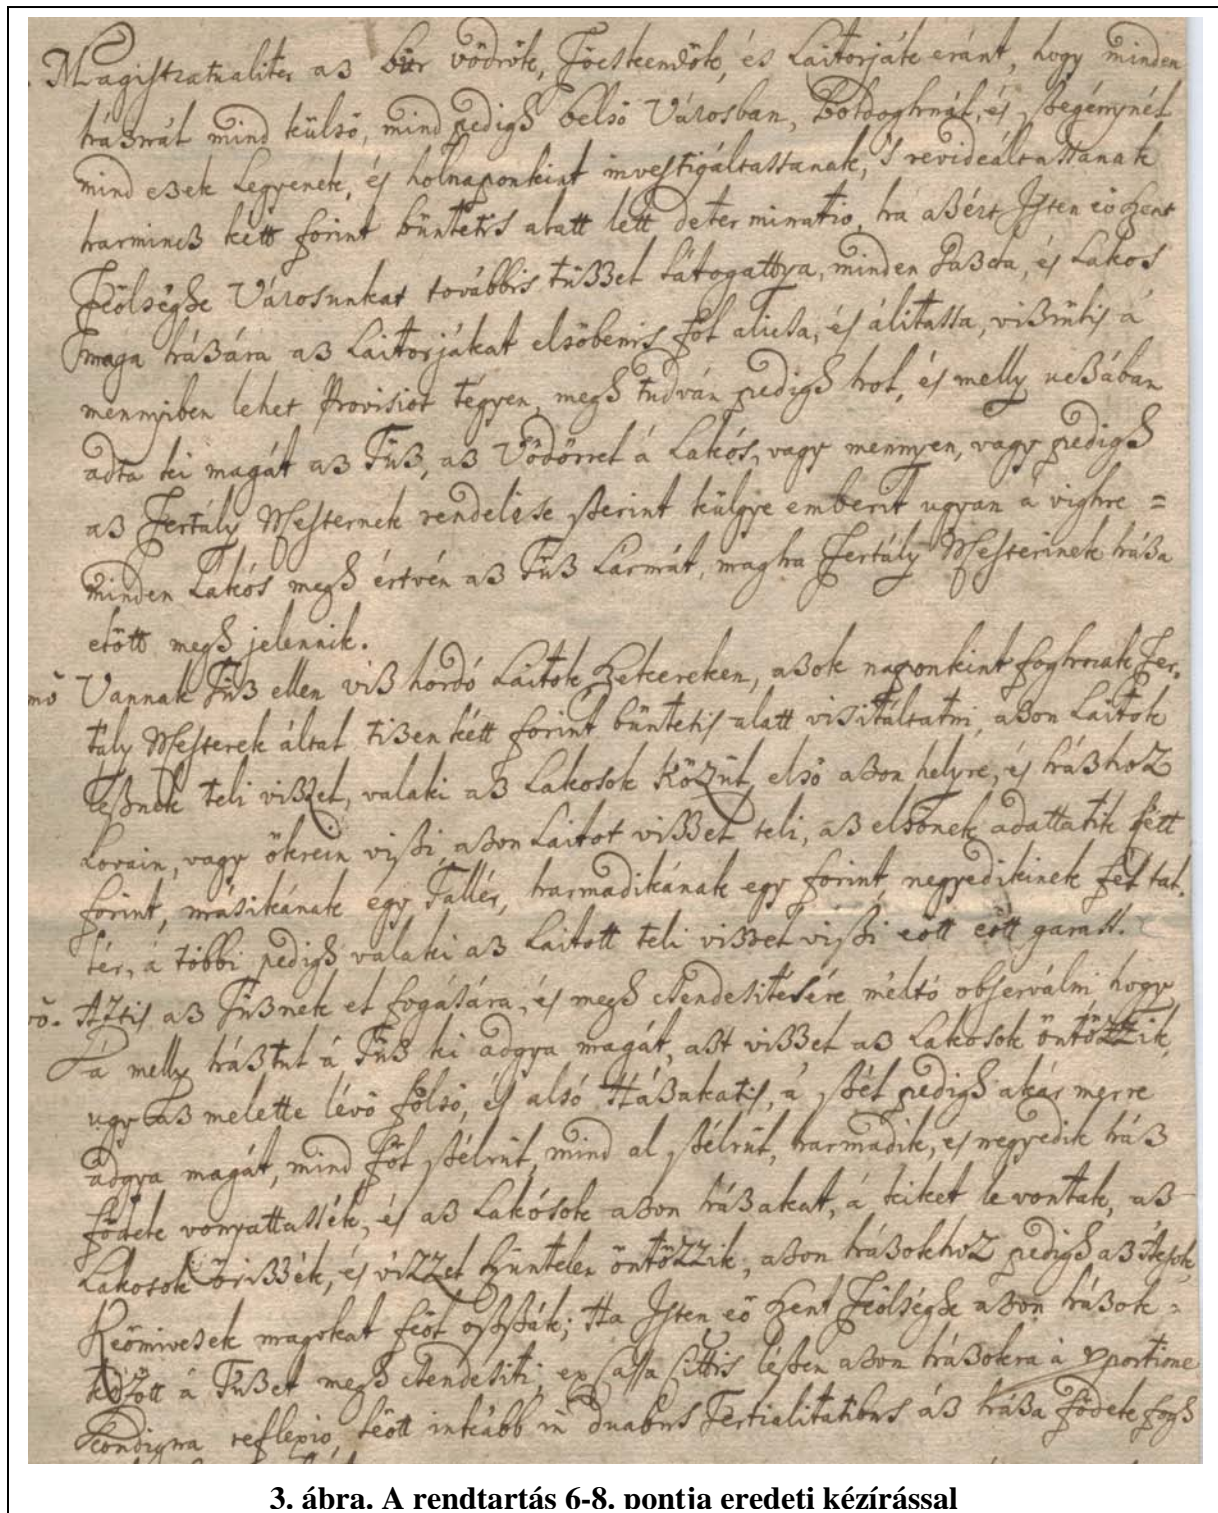 Magistratualiter az bür vödrök, Föcskendök, és Laitorják eránt, hogy minden
háznál mind külsö, mind pedigh belsö Városban, Boldoghnál, és szegénynél
mind ezek Legyenek, és holnaponkint investigáltassanak, 's revideáltassanak
harmincz kétt forint büntetés alatt lett determinatio, ha azért Isten eö szent
Feölséghe Városunkat továbbis tüzzel Látogattya, minden Gazda, és Lakos
maga házára az Laitorjákat elsöbenis föl alicsa, és álitassa, vizrülis á
mennyiben lehet Provisiot tégyen, megh tudván pedigh hol, és melly uczában
adta ki magát az Tüz, az Vödörrel á Lakós, vagy mennyen, vagy pedigh
az Fertály Mesternek rendelése szerint külgye emberit ugyan á vighre =
minden Lakós megh értvén az Tüz Lármát, magha Fertály Mesterinek háza
elött megh jelennik.
mö Vannak Tüz ellen viz hordó Laitok Szekereken, azok naponkint foghnak Fer-
tály Mesterek által tizenkétt forint büntetés alatt visitáltatni, azon Laitok
Lesznek teli vizzel, valaki az Lakosok Közzül elsö azon helyre, és házhoz
Lovain, vagy ökrein viszi azon Laitot vizzel teli, az elsönek adattatik kétt
forint, másikának egy Tallér, harmadikának egy forint, negyedikinek fél tal-
lér, á többi pedigh valaki az Laitott teli vizzel viszi eött eött garast.
vö. Aztis az Tüznek el fogására, és megh csendesitésére méltó observálni, hogy
á melly háztul á Tüz ki adgya magát, azt vizzel az Lakosok öntözzik,
ugy az melette lévö fölsö, és alsó Házakatis, á szél pedigh akár merre
adgya magát, mind föl szélrül, mind al szélrül, harmadik, és negyedik ház
födele vonyattassék, és az Lakósok azon házakat, á kiket le vontak, az
Lakosok örizzék, és vizzel szüntelen öntözzik, azon házokhoz pedigh az Átsok,
Keömivesek magokat föl osszák; Ha Isten eö szent Feölséghe azon házok =
között á Tüzet megh csendesiti, ex Cassa Cittis lészen azon házokra á portione
condigna reflexio, seött inkább in duabus Tertialitatibus áz háza födele fogh
3. ábra. A rendtartás 6-8. pontja eredeti kézírással